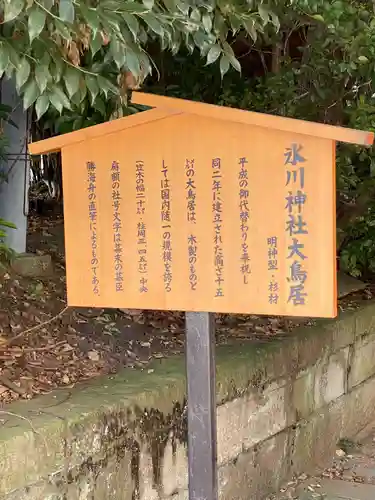 氷川神社大鳥居
明神型・杉材
平成の御代替わりを奉祝し
同二年に建立された高さ十五
㍍の大鳥居は、木製のものと
しては国内随一の規模を誇る
(笠木の幅二十㍍・柱周三・四五㍍)中央
扁額の社号文字は幕末の幕臣
勝海舟の直筆によるものである。